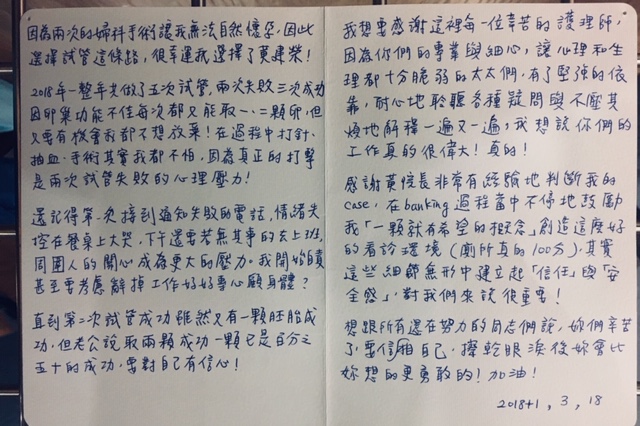 因為兩次的婦科手術讓我無法自然懷孕,因此
選擇試管這條路,很幸運我選擇了茂盛!
2018年一整年共做了五次試管,兩次失敗三次成功
因卵巢功能不佳每次都只能取一、二顆卵,但
只要有機會我都不想放棄!在過程中打針、
抽血、手術其實我都不怕,因為真正的打擊
是兩次試管失敗的心理壓力!
還記得第一次接到通知失敗的電話,情緒失
控在餐桌上大哭,下午還要若無其事的去上班,
周圍人的關心成為更大的壓力。我開始自責
甚至要考慮辭掉工作好好專心顧身體?
直到第二次試管成功雖然只有一顆胚胎成
功,但老公說取兩顆成功一顆已是百分之
五十的成功,要對自己有信心!
我想要感謝這裡每一位辛苦的護理師,
因為你們的專業與細心,讓心理和生
理都十分脆弱的太太們,有了堅強的依
靠,耐心地聆聽各種疑問與不厭其
煩地解釋一遍又一遍,我想說你們的
工作真的很偉大!真的!
感謝黃院長非常有經驗地判斷我的
case,在banking過程當中不停地鼓勵
我「一顆就有希望的概念」創造這麼好
的看診環境(廁所真的100分),其實
這些細節無形中建立起「信任」與「安
全感」,對我們來說很重要!
想跟所有還在努力的同志們說,妳們辛苦
了,要相信自己,擦乾眼淚後妳會比
妳想的更勇敢的!加油!
2018+1,3,18